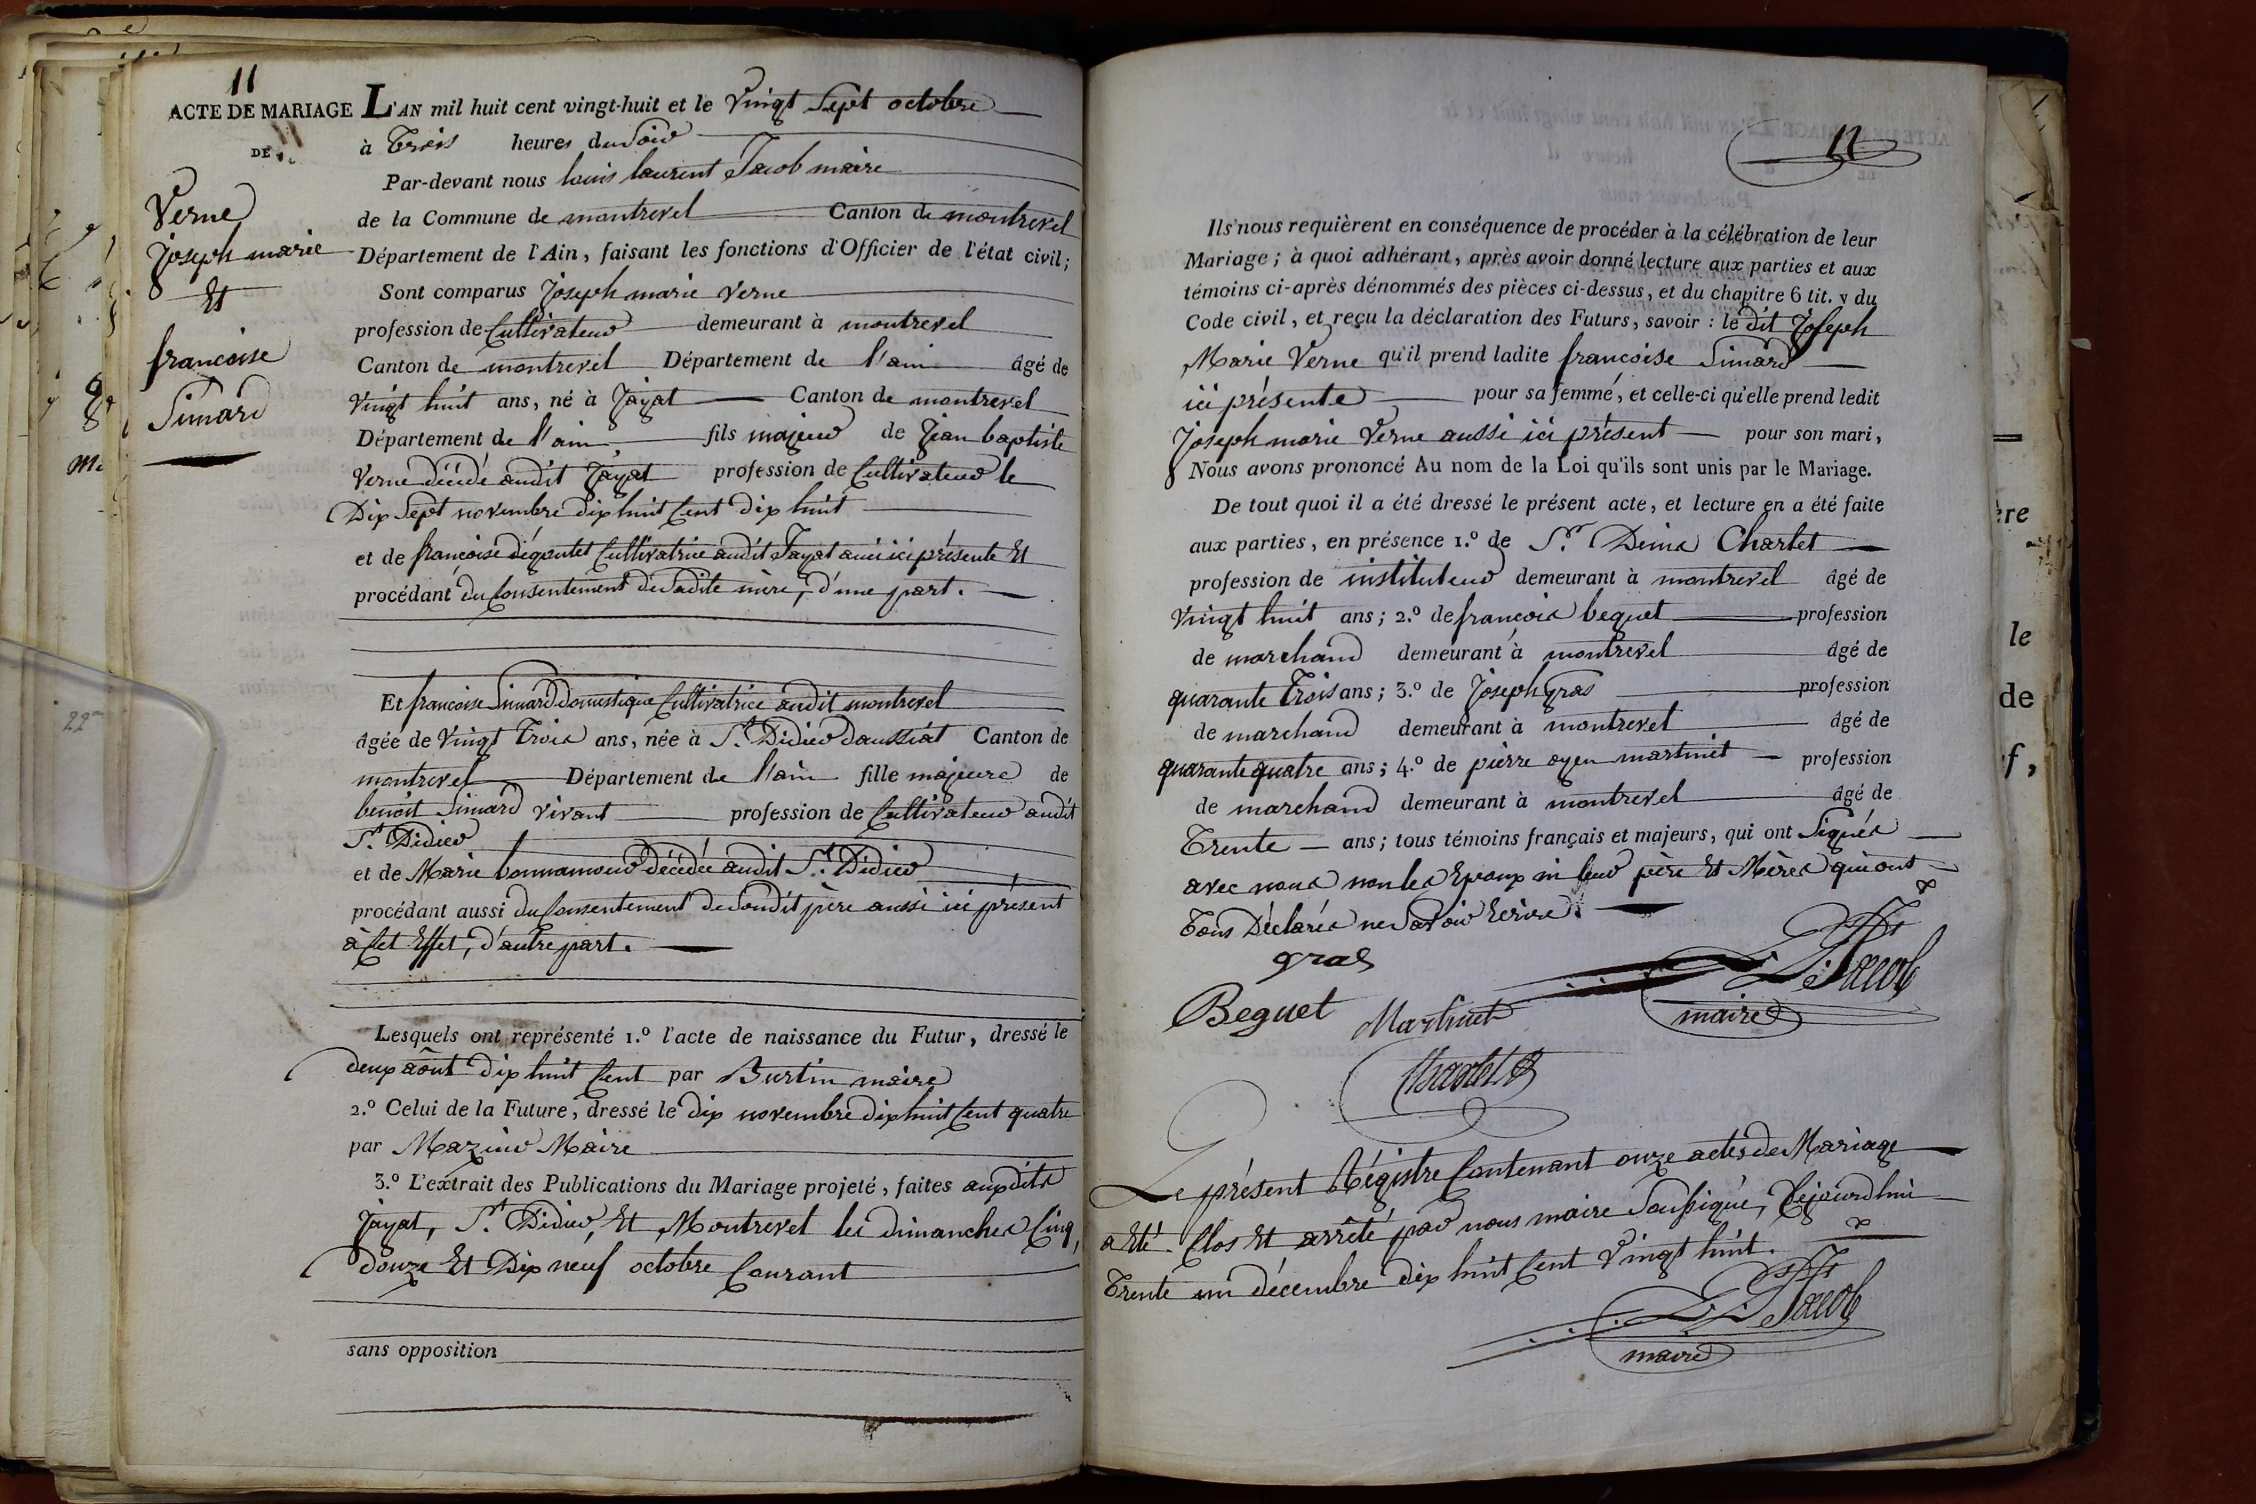 11
ACTE DE MARIAGE
DE
Verne
Joseph marie
Et
francoise
Simard
L'AN mil huit cent vingt-huit et le Vingt Sept octobre
à Trois heures du Soir
Par-devant nous louis laurent Jacob maire
de la Commune de montrevel Canton de montrevel
Département de l'Ain, faisant les fonctions d'Officier de l'état civil;
Sont comparus Joseph marie Verne
profession de Cultivateur demeurant à montrevel
Canton de montrevel Département de l'ain âgé de
Vingt huit ans, né à Jayat Canton de montrevel
Département de l'ain fils majeur de Jean baptiste
Verne décédé audit Jayat profession de Cultivateur le
Dix Sept novembre dix huit Cent dix huit
et de francoise Cultivatrice audit Jayat ici présente Et
procédant du Consentement de Sadite mère, d'une part.
Et francoise Simard domestique Cultivatrice audit montrevel
âgée de Vingt Trois ans, née à St. Didier daussiat Canton de
montrevel Département de l'ain fille majeure de
benoit Simard vivant profession de Cultivateur audit
St. Didier
et de Marie bonnamour décédée audit St. Didier
procédant aussi du Consentement de Sondit père aussi ici présent
à Cet Effet, d'autre part.
Lesquels ont représenté 1.º l'acte de naissance du Futur, dressé le
deux août dix huit Cent par Burtin maire
2.º Celui de la Future, dressé le dix novembre dix huit Cent quatre
par Mazuir Maire
3.º L'extrait des Publications du Mariage projeté, faites auxdits
Jayat, St. Didier, Et Montrevel les dimanches Cinq,
douze Et Dix neuf octobre Courant
sans opposition
11
Ils nous requièrent en conséquence de procéder à la célébration de leur
Mariage; à quoi adhérant, après avoir donné lecture aux parties et aux
témoins ci-après dénommés des pièces ci-dessus, et du chapitre 6 tit. v du
Code civil, et reçu la déclaration des Futurs, savoir: le dit Joseph
Marie Verne qu'il prend ladite francoise Simard
ici présente pour sa femme, et celle-ci qu'elle prend ledit
Joseph marie Verne aussi ici présent pour son mari,
Nous avons prononcé Au nom de la Loi qu'ils sont unis par le Mariage.
De tout quoi il a été dressé le présent acte, et lecture en a été faite
aux parties, en présence 1.º de Sr. Denis Charlet
profession de instituteur demeurant à montrevel âgé de
Vingt huit ans; 2.º de françois beguet profession
de marchand demeurant à montrevel âgé de
quarante Trois ans; 3.º de Joseph gras profession
de marchand demeurant à montrevel âgé de
quarante quatre ans; 4.º de pierre martinet profession
de marchand demeurant à montrevel âgé de
Trente ans; tous témoins français et majeurs, qui ont Signés
avec nous non les Epoux ni leur père Et Mères qui ont
Tous Déclarés ne Savoir Ecrire.
gras
Beguet Martinet
L. L. Jacob
maire
Charlet
Le présent Régistre Contenant onze actes de Mariage
a Eté Clos Et arrêté par nous maire Soussigné, Cejourdhui
Trente un décembre dix huit Cent Vingt huit.
L. L. Jacob
maire